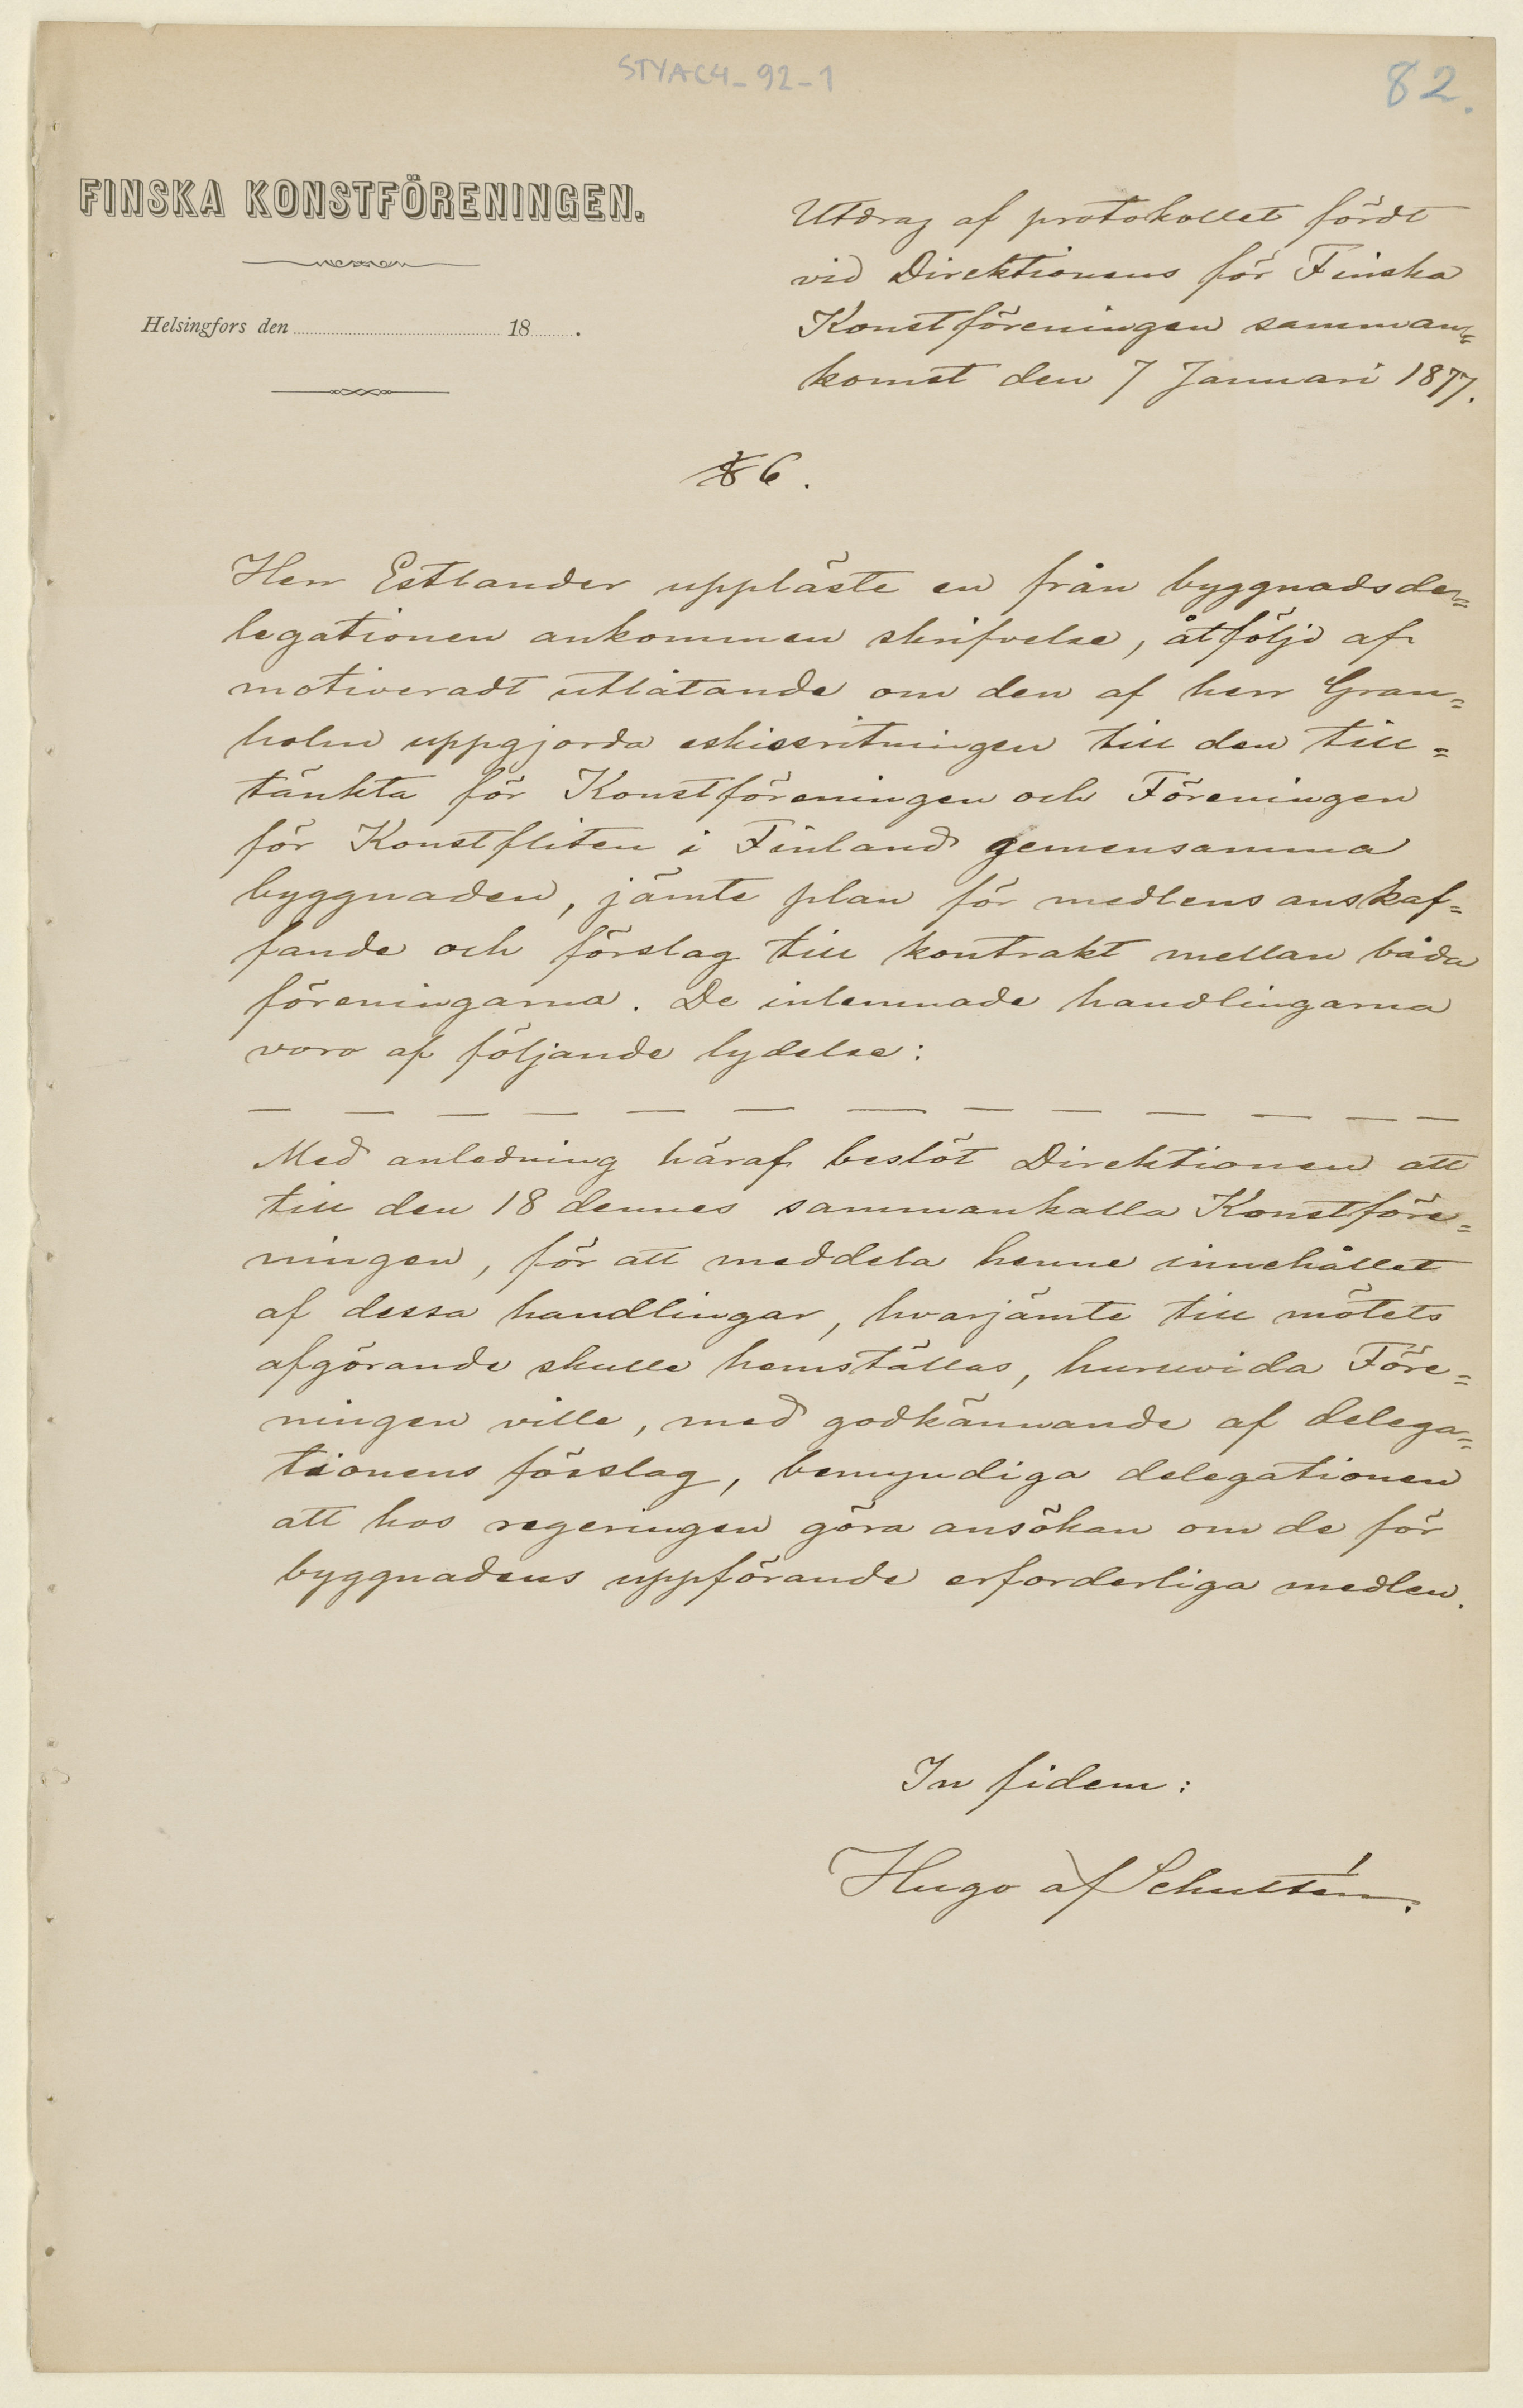 STYAC4_92_1
82.
FINSKA KONSTFÖRENINGEN.
Helsingfors den 18 .
Utdrag af protokollet fördt
vid Direktionens för Finska
Konstföreningen samman=
komst den 7 Januari 1877.
§ 6.
Herr Estlander uppläste en från byggnadsde=
legationen ankommen skrifvelse, åtföljd af
motiveradt utlåtande om den af herr Gran=
holm uppgjorda eskissritningen till den till=
tänkta för Konstföreningen och Föreningen
för Konstfliten i Finland gemensamma
byggnaden, jämte plan för medlens anskaf=
fande och förslag till kontrakt mellan båda
föreningarna. De inlemnade handlingarna
voro af följande lydelse:
— — — — — — — — — — — — —
Med anledning häraf beslöt Direktionen att
till den 18 dennes sammankalla Konstföre=
ningen, för att meddela henne innehållet
af dessa handlingar, hvarjämte till mötets
afgörande skulle hemställas, huruvida Före=
ningen ville, med godkännande af delega=
tionens förslag, bemyndiga delegationen
att hos regeringen göra ansökan om de för
byggnadens uppförande erforderliga medlen.
In fidem:
Hugo af Schultén.